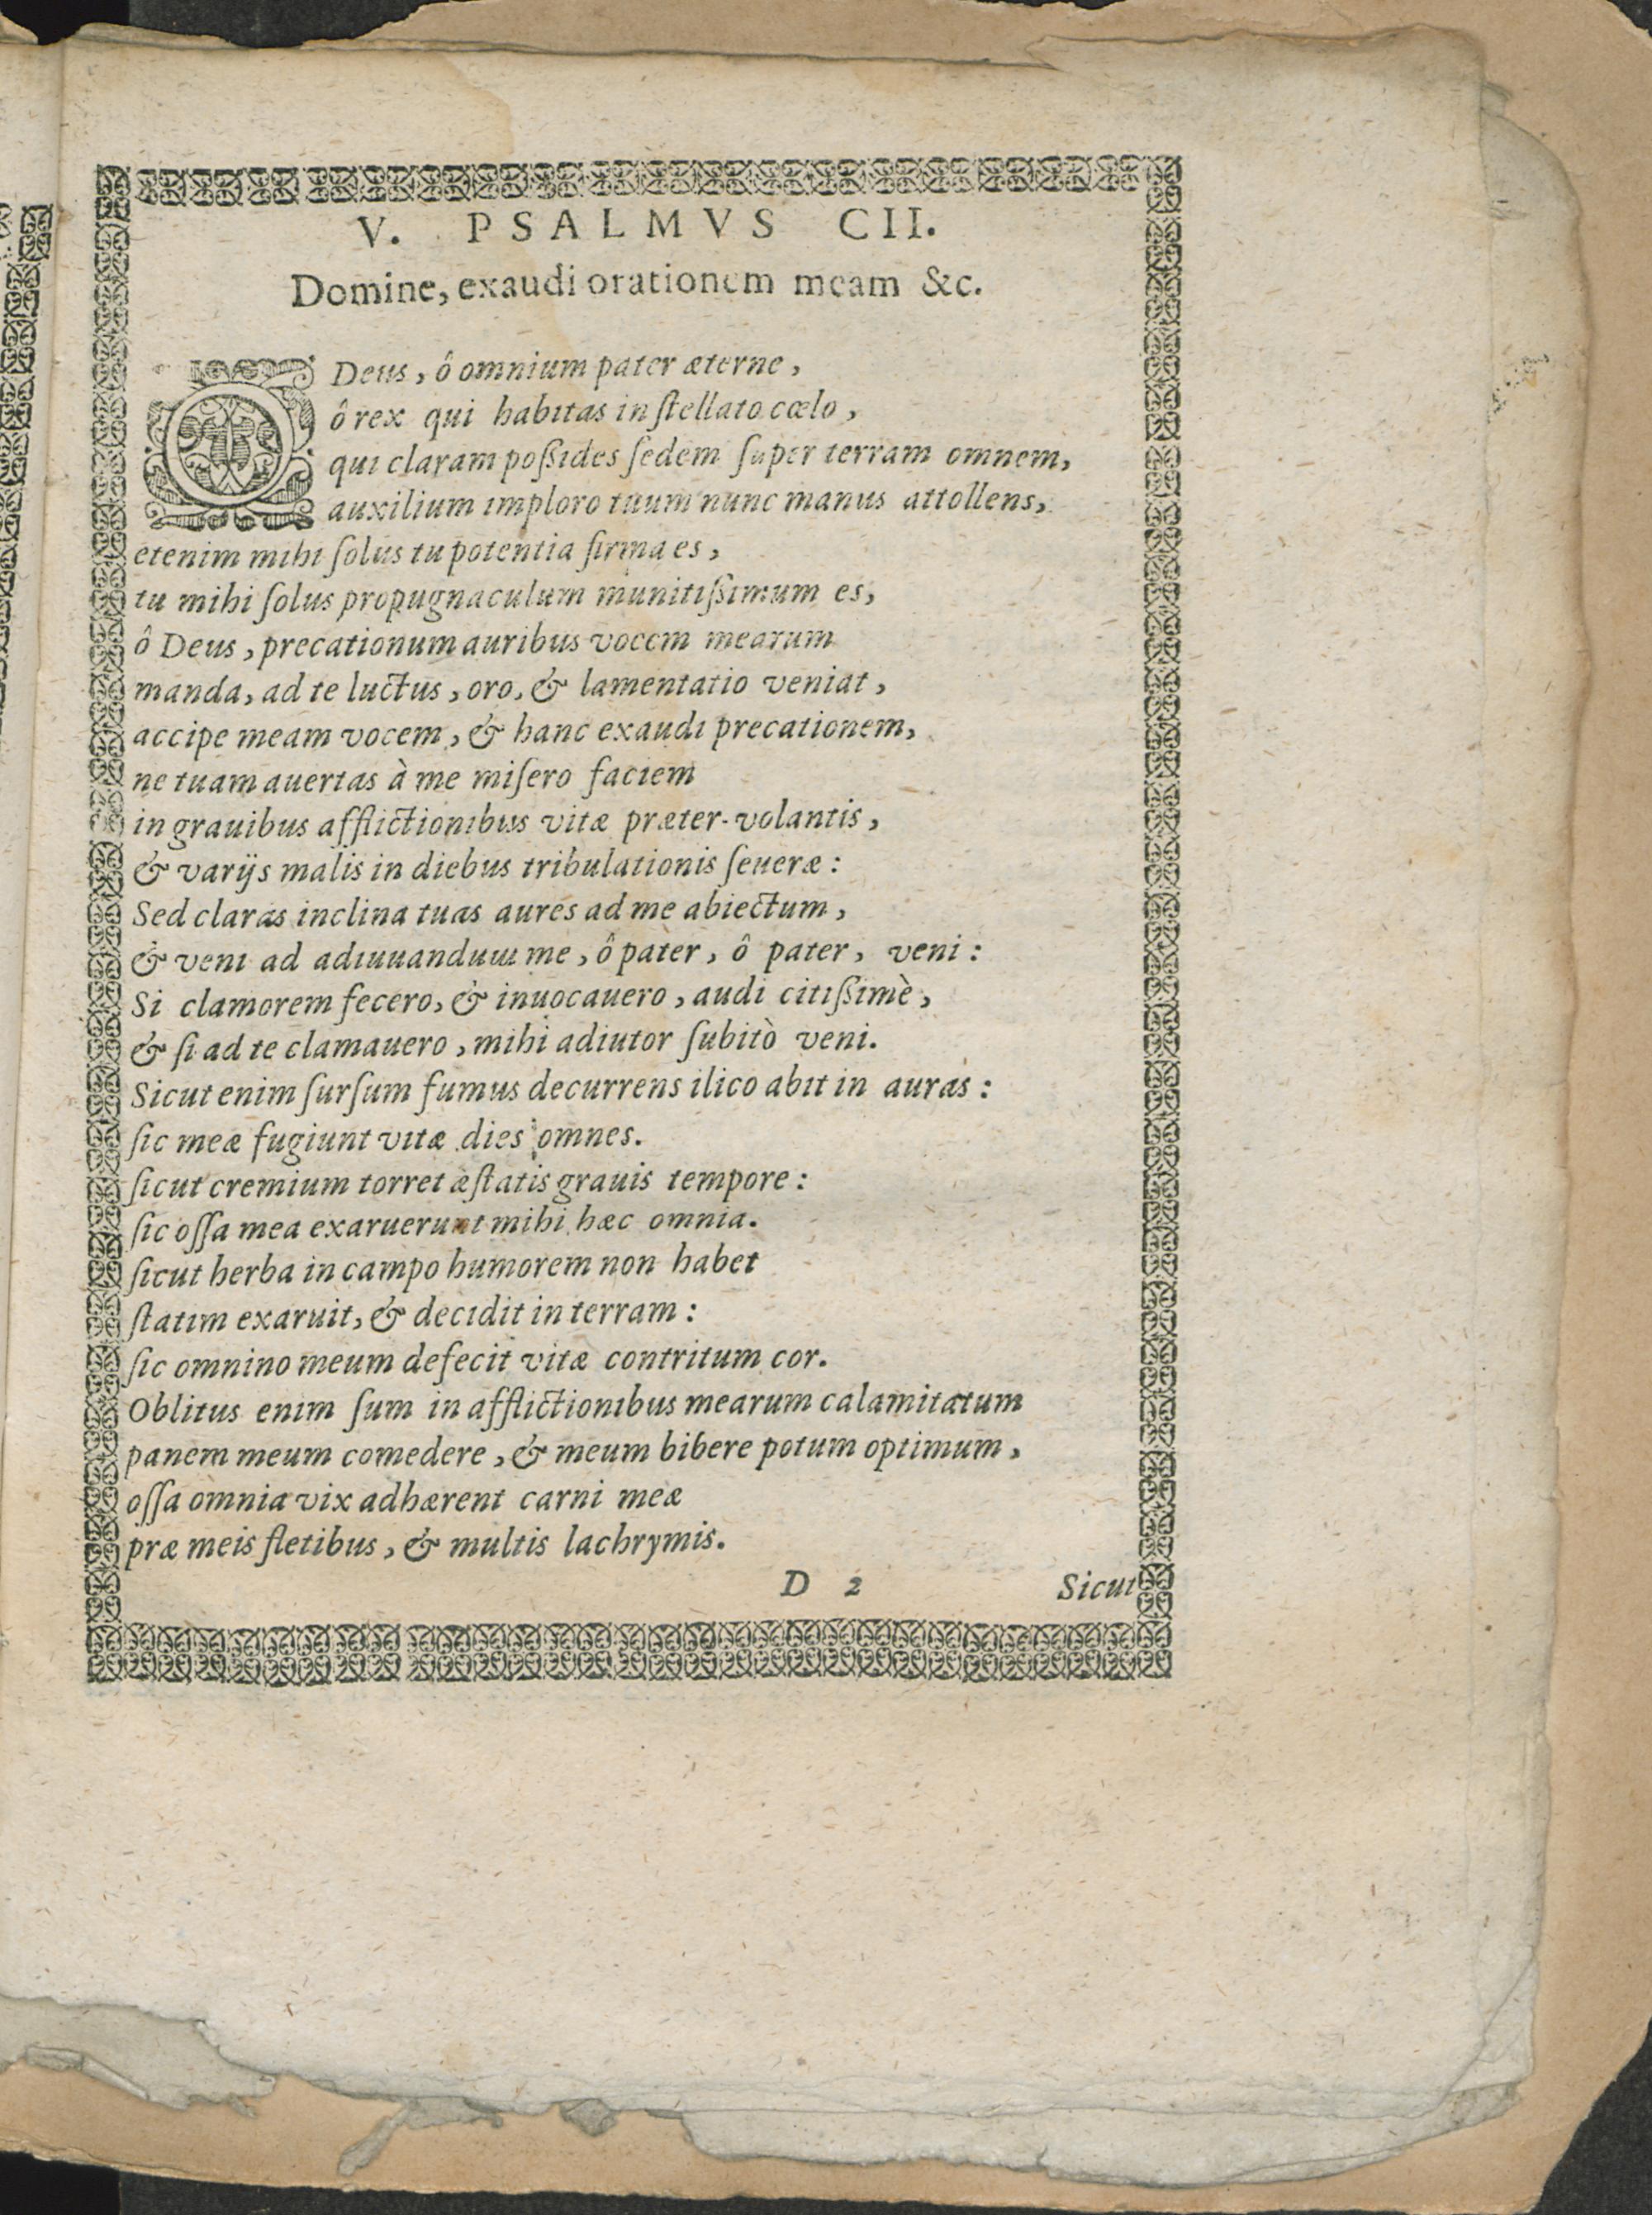 V. PSALMVS CII.
Domine, exaudi orationem meam &c.
O Deus, ô omnium pater æterne,
ô rex qui habitas in ſtellato cœlo,
qui claram poßides ſedem ſuper terram omnem,
auxilium imploro tuum nunc manus attollens,
etenim mihi ſolus tu potentia firma es,
tu mihi ſolus propugnaculum munitißimum es,
ô Deus, precationum auribus vocem mearum
manda, ad te luctus, oro, & lamentatio veniat,
accipe meam vocem, & hanc exaudi precationem,
ne tuam auertas à me miſero faciem
in grauibus afflictionibus vitæ præter-volantis,
& varijs malis in diebus tribulationis ſeueræ:
Sed claras inclina tuas aures ad me abiectum,
& veni ad adiuuandum me, ô pater, ô pater, veni:
Si clamorem fecero, & inuocauero, audi citißimè,
& ſi ad te clamauero, mihi adiutor ſubitò veni.
Sicut enim ſurſum fumus decurrens ilico abit in auras:
ſic meæ fugiunt vitæ dies omnes.
ſicut cremium torret æſtatis grauis tempore:
ſic oſſa mea exaruerunt mihi hæc omnia.
ſicut herba in campo humorem non habet
ſtatim exaruit, & decidit in terram:
ſic omnino meum defecit vitæ contritum cor.
Oblitus enim ſum in afflictionibus mearum calamitatum
panem meum comedere, & meum bibere potum optimum,
oſſa omnia vix adhærent carni meæ
præ meis fletibus, & multis lachrymis.
D 2 Sicut